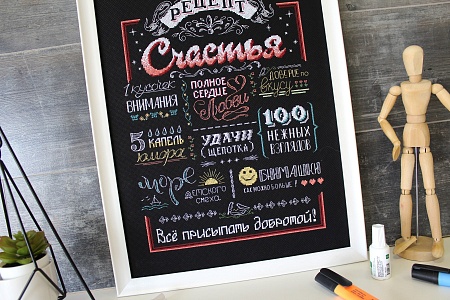 РЕЦЕПТ
Счастья
1 кусочек
ВНИМАНИЯ
ПОЛНОЕ
СЕРДЦЕ
Любви
ДОВЕРИЕ по
вкусу
5 КАПЕЛЬ
юмора
УДАЧИ
(ЩЕПОТКА)
100
НЕЖНЫХ
ВЗГЛЯДОВ
море
детского
смеха
ОБНИМАШКИ
КАК МОЖНО БОЛЬШЕ!
Всё присыпать добротой!